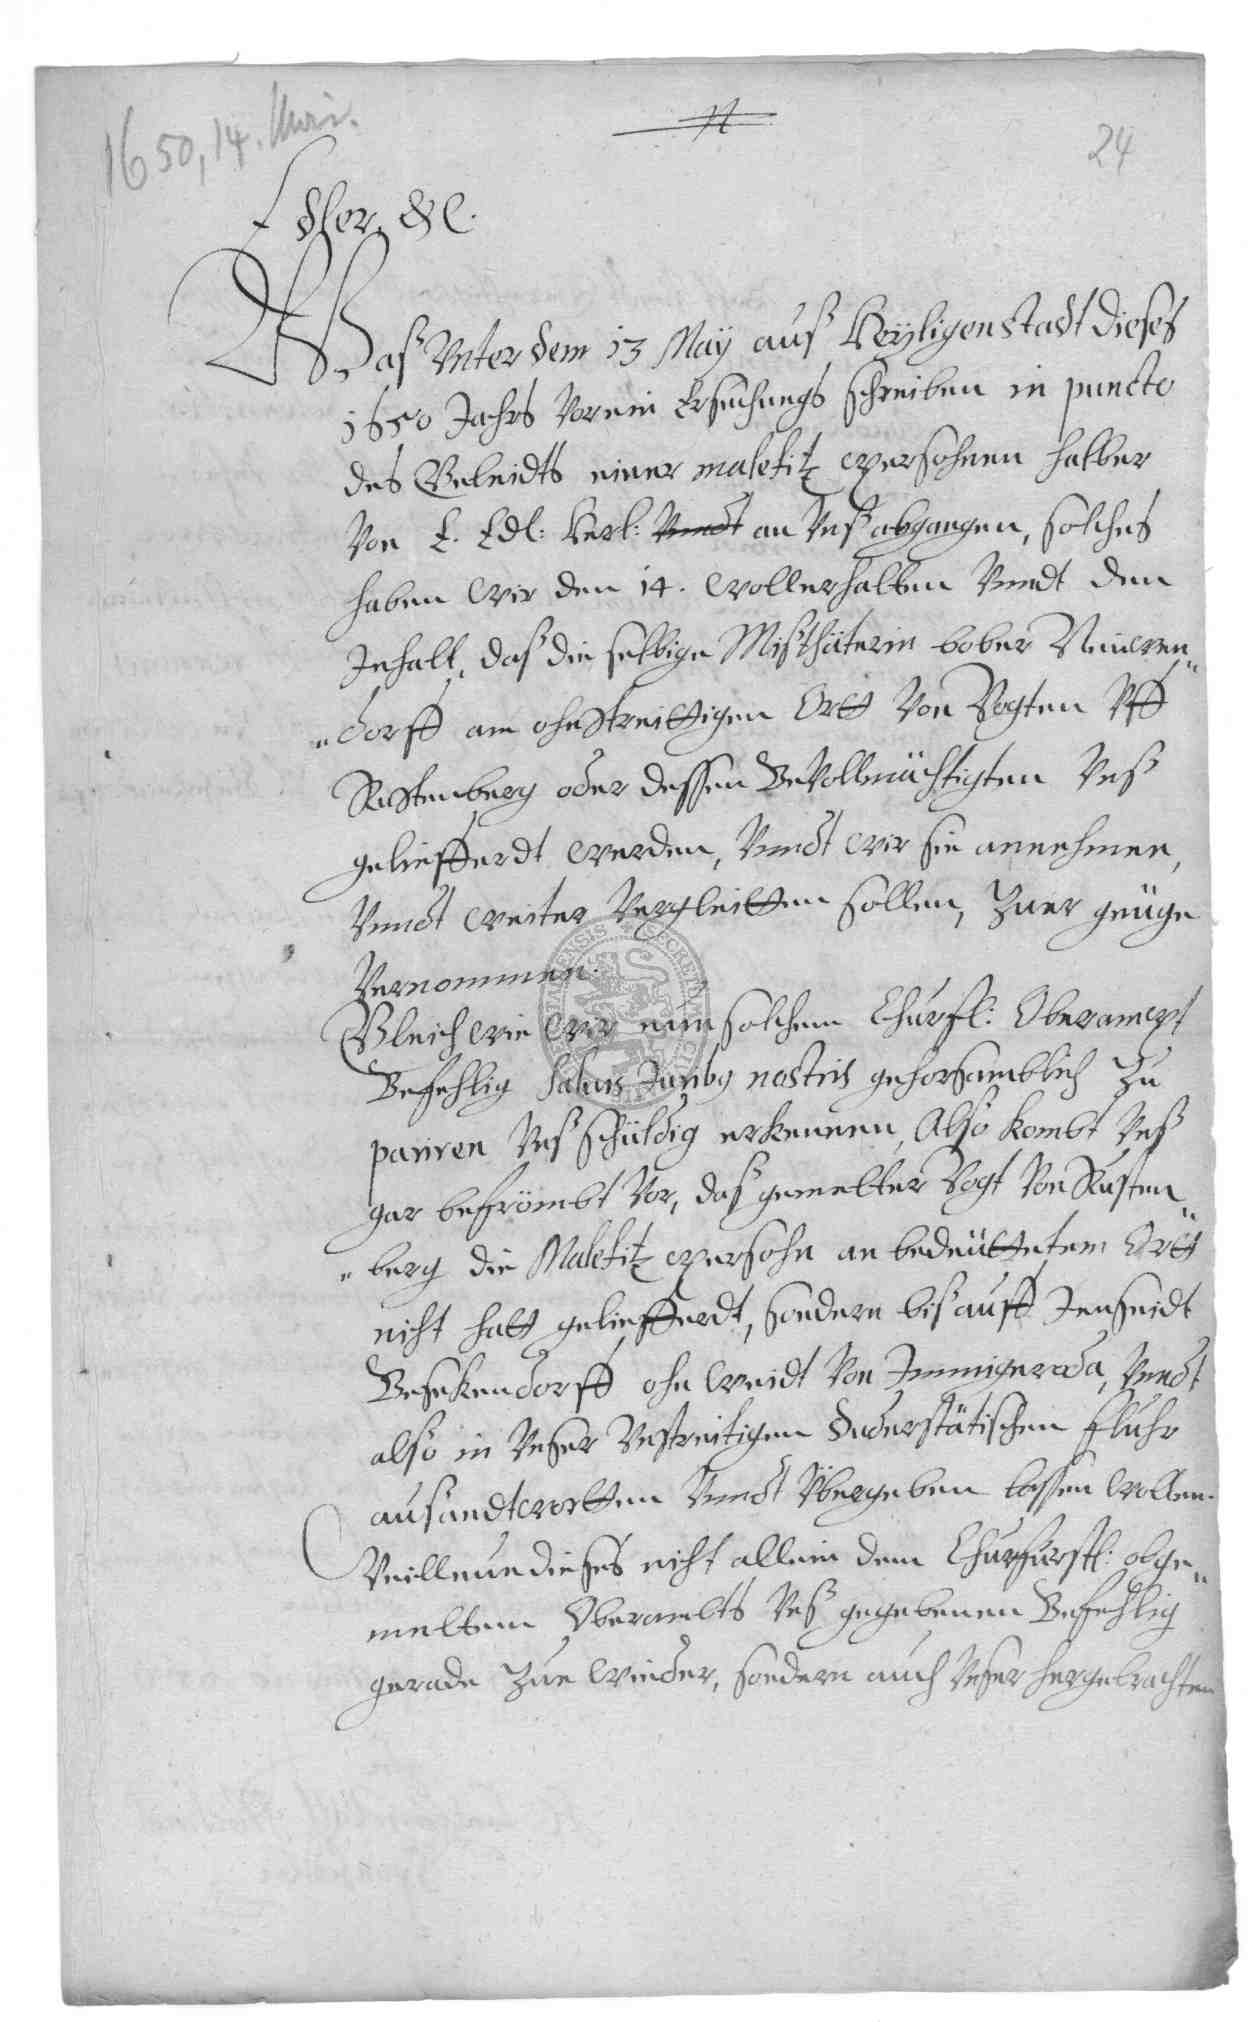 1650, 14. Mai.
24
Edler &c.
Waß Unter dem 13 Maÿ auß Heÿligenstadt dieses
1650 Jahrs Vor ein Ersuchungs schreiben in puncto
des Geleidts einer malefitz persohnen halber
Von E. Edl: Herl: Vndt an Unß abgangen, solches
haben wir den 14. woll erhalten Vndt den
Inhalt, daß die selbige Mißthäterin bober Neuwen„
„dorff am ohnstreittigen Ortt Von Vogten Vff
Rustenberg oder dessen BeVollmächtigten Vnß
geliefferdt werden, Vndt wir sie annehmen,
Vndt weiter Vergleitten sollen, Zuer genüge
Vernommen.
Gleich wie wir nun solchem Churfl: Oberampt
Befehlig salvis Juribg nostris gehorsamblich Zu
pariren Vnß schüldig erkennen, Also kombt Vnß
gar befrömbt Vor, daß gemelter Vogt Von Rusten„
„berg die Malefitz persohn an bedeüttetem Ortt
nicht hatt geliefferdt, sondern biß auff Jenseidt
Besekendorff ohn weidt Von Immigeroda, Vndt
also in Vnser Vnstreitigen Duderstätischen Fluhr
ausandtwortten Vndt Vbergeben lassen wollen.
Weill nun dieses nicht allein dem Churfürstl: obge„
meltem Oberambts Vnß gegebenen Befehlig
gerade Zue wieder, sondern auch Vnser hergebrachten